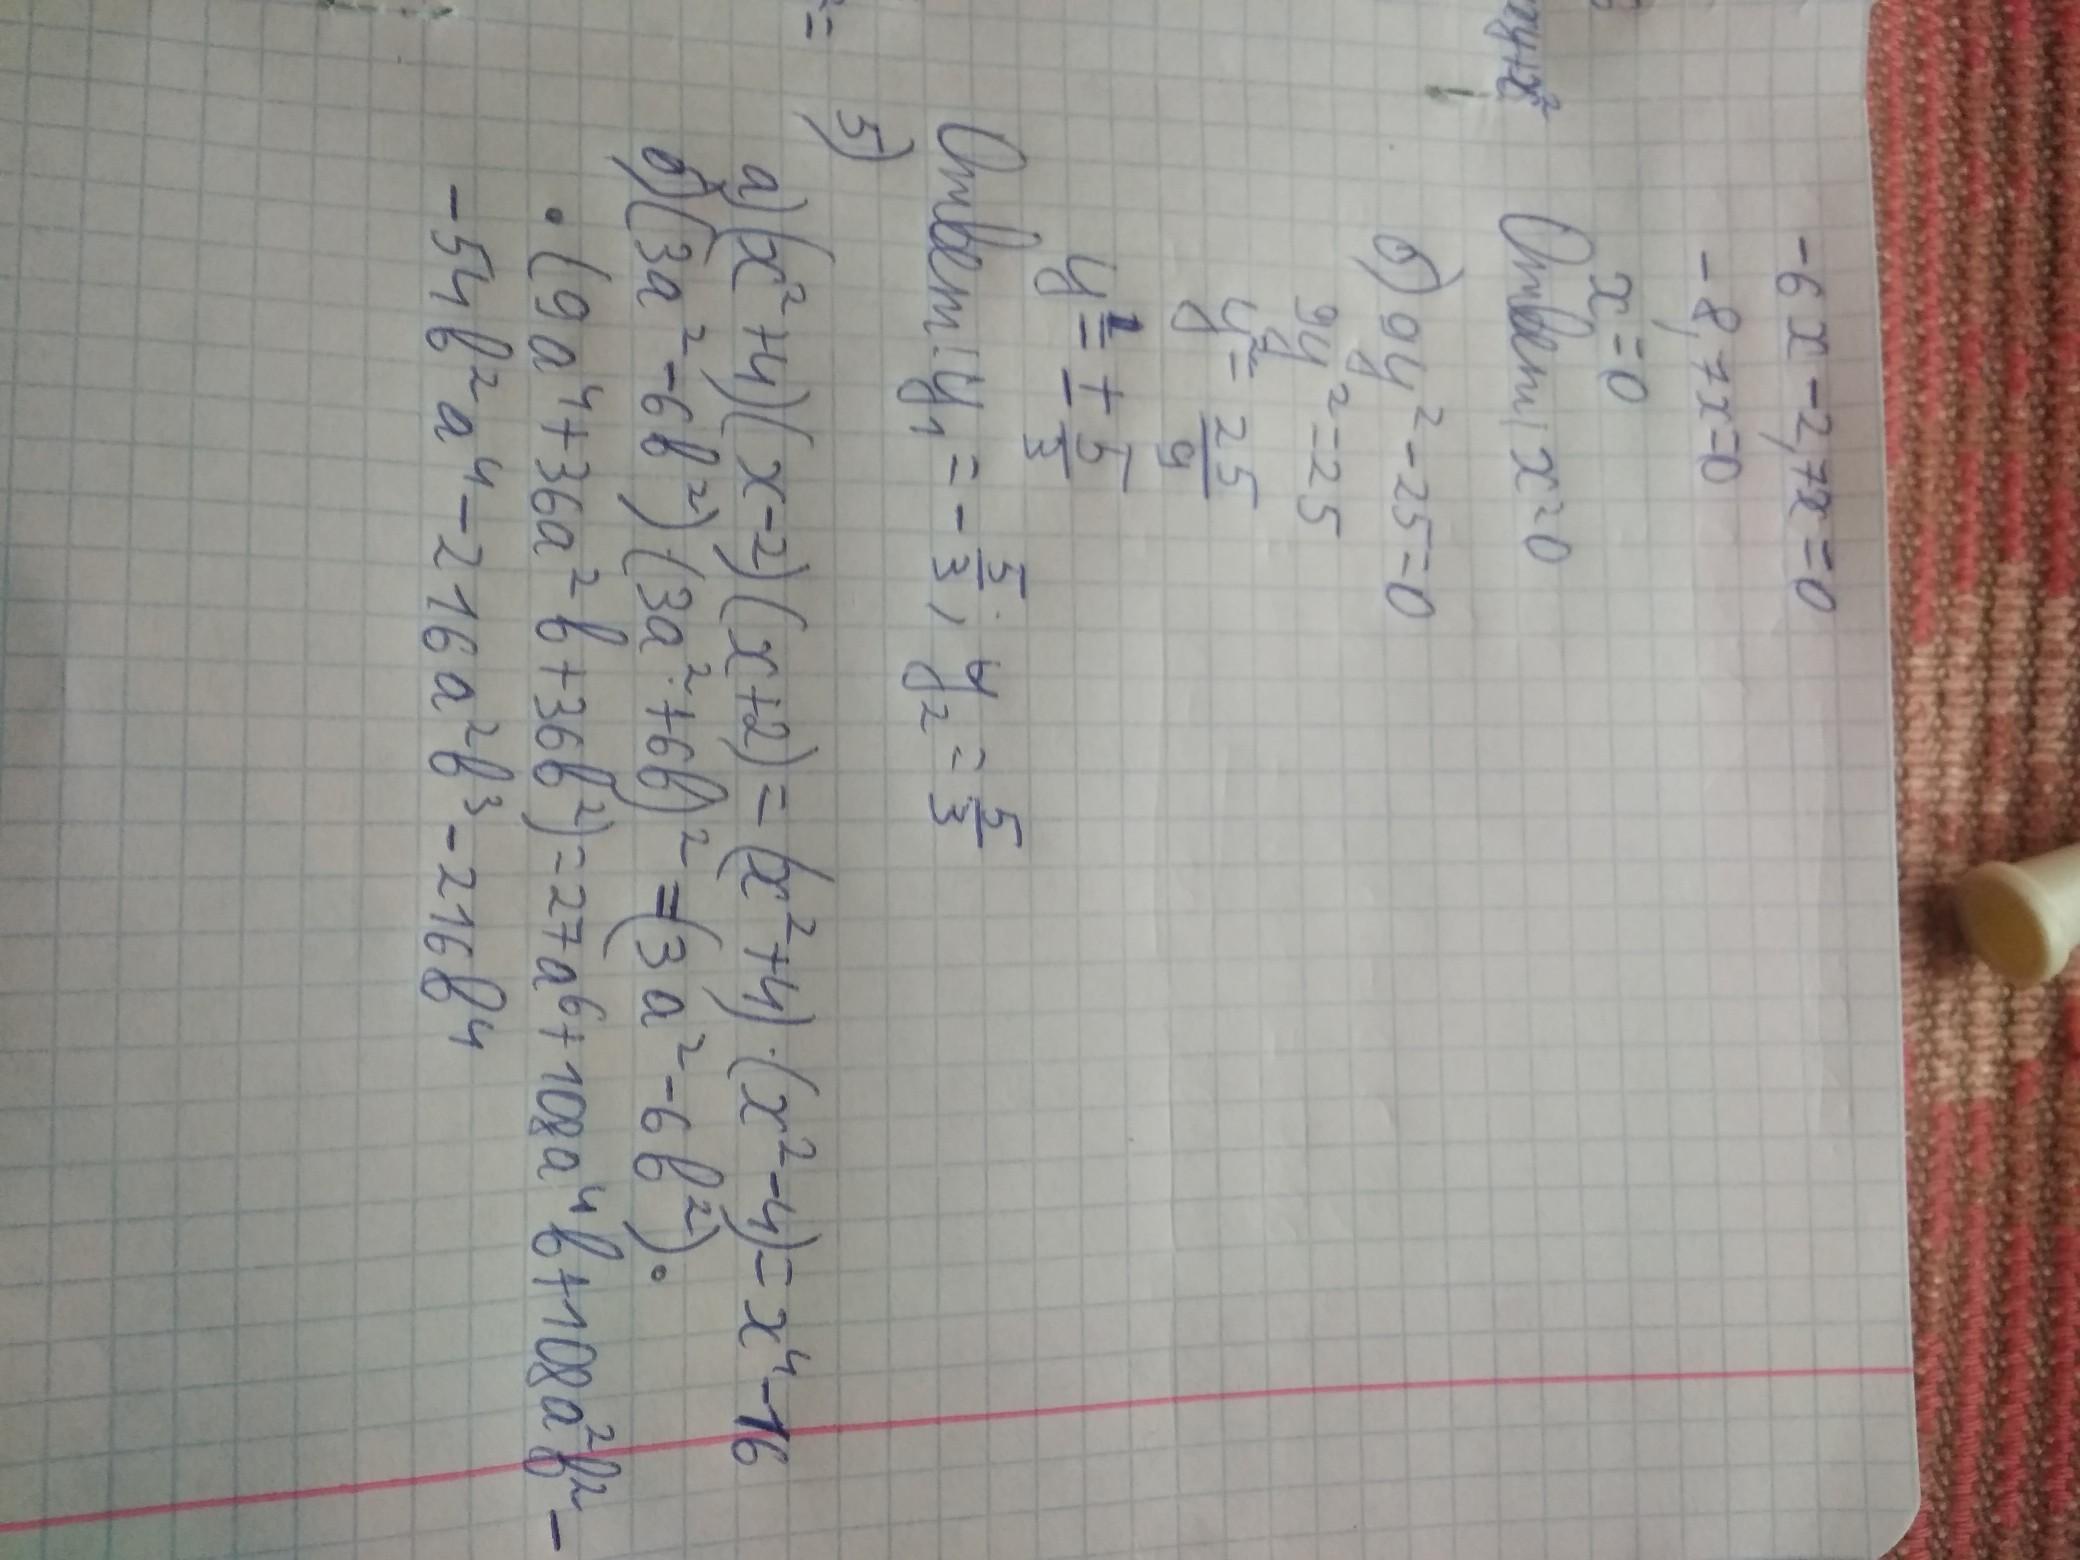 xy+x²
=
-6x-2,7x=0
-8,7x=0
x=0
Ответ: x=0
б) 9y²-25=0
9y²=25
y²=25/9
y=±5/3
Ответ: y₁=-5/3; y₂=5/3
5)
а) (x²+4)(x-2)(x+2)=(x²+4)·(x²-4)=x⁴-16
б) (3a²-6b²)(3a²+6b)²=(3a²-6b²)·
·(9a⁴+36a²b+36b²)=27a⁶+108a⁴b+108a²b²-
-54b²a⁴-216a²b³-216b⁴